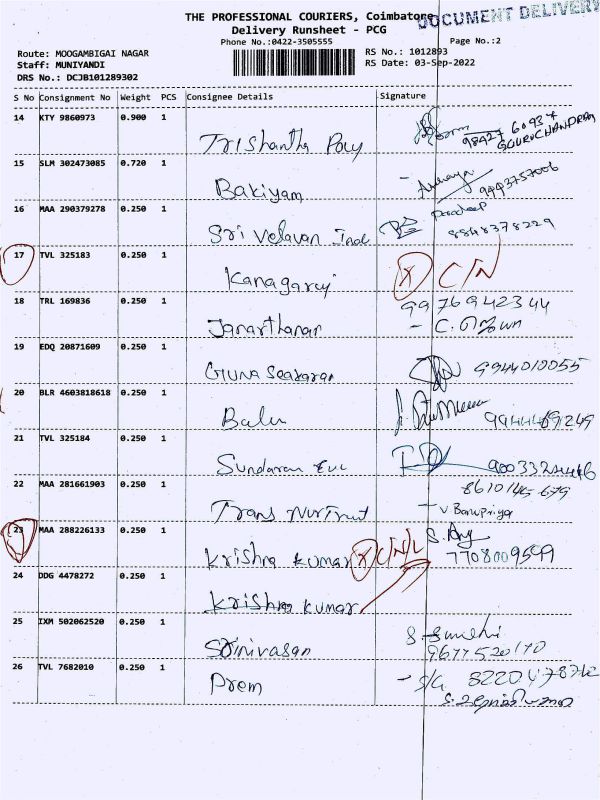 THE PROFESSIONAL COURIERS, Coimbatore
DOCUMENT DELIVERY
Delivery Runsheet - PCG
Phone No.:0422-3505555
Page No.:2
Route: MOOGAMBIGAI NAGAR
RS No.: 1012893
Staff: MUNIYANDI
RS Date: 03-Sep-2022
DRS No.: DCJB101289302
S No Consignment No Weight PCS Consignee Details Signature
14 KTY 9860973 0.900 1
Trishantha
GURUCHANDRAN
15 SLM 302473085 0.720 1
Bakiyam
9443757006
16 MAA 290379278 0.250 1
Sri Velavan Ind Pradeep
8848378229
17 TVL 325183 0.250 1
Kanagaraj X C/N
18 TRL 169836 0.250 1
9976942344
Janarthanan - C.
19 EDQ 20871609 0.250 1
Guna Seakaran 9944010055
20 BLR 4603818618 0.250 1
Balu 9944469249
21 TVL 325184 0.250 1
Sundaran
22 MAA 281661903 0.250 1
8610145679
Trans - V Banupriya
23 MAA 288226133 0.250 1
Krishna Kumar X C/N/L 7708009599
24 DDG 4478272 0.250 1
Krishna Kumar
25 IXM 502062520 0.250 1
Srinivasan 9677520170
26 TVL 7682010 0.250 1
Prem - S/G